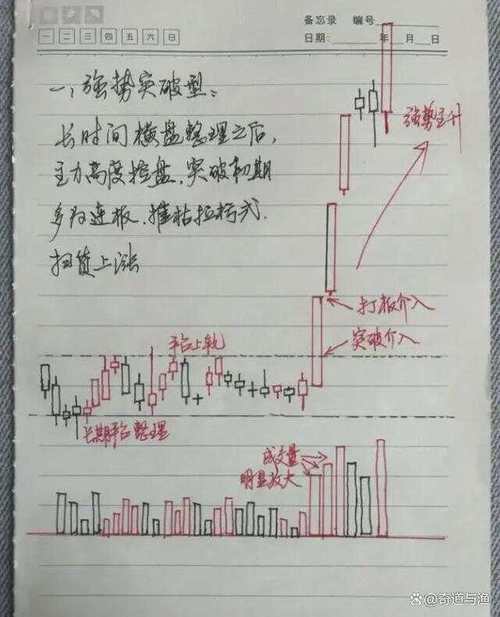 备忘录 编号
一 二 三 四 五 六 日
日期: 年 月 日
一、强势突破型:
长时间横盘整理之后,
主力高度控盘、突破初期
多为连板、推枯拉朽式
扫货上涨
强势主升
打板介入
突破介入
平台上轨
长期平台整理
成交量
明显放大
@奇道与渔